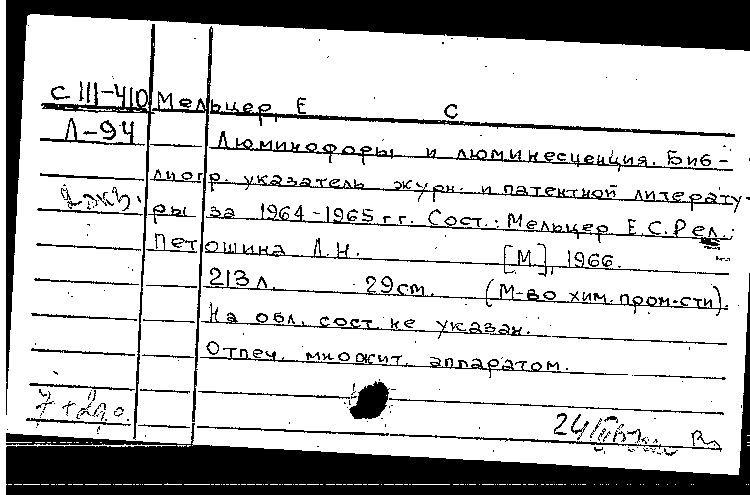 С III-410 Мельцер, Е С
Л-94
Люминофоры и люминесценция. Биб-
лиогр. указатель журн. и патентной литерату-
2 экз.
ры за 1964-1965 г.г. Сост.: Мельцер Е.С. Ред.:
Петошина Л.Н. [М.], 1966.
213 л. 29 cm. (М-во хим. пром-сти).
На обл. сост. не указан.
Отпеч. множит. аппаратом.
7 +
24/III